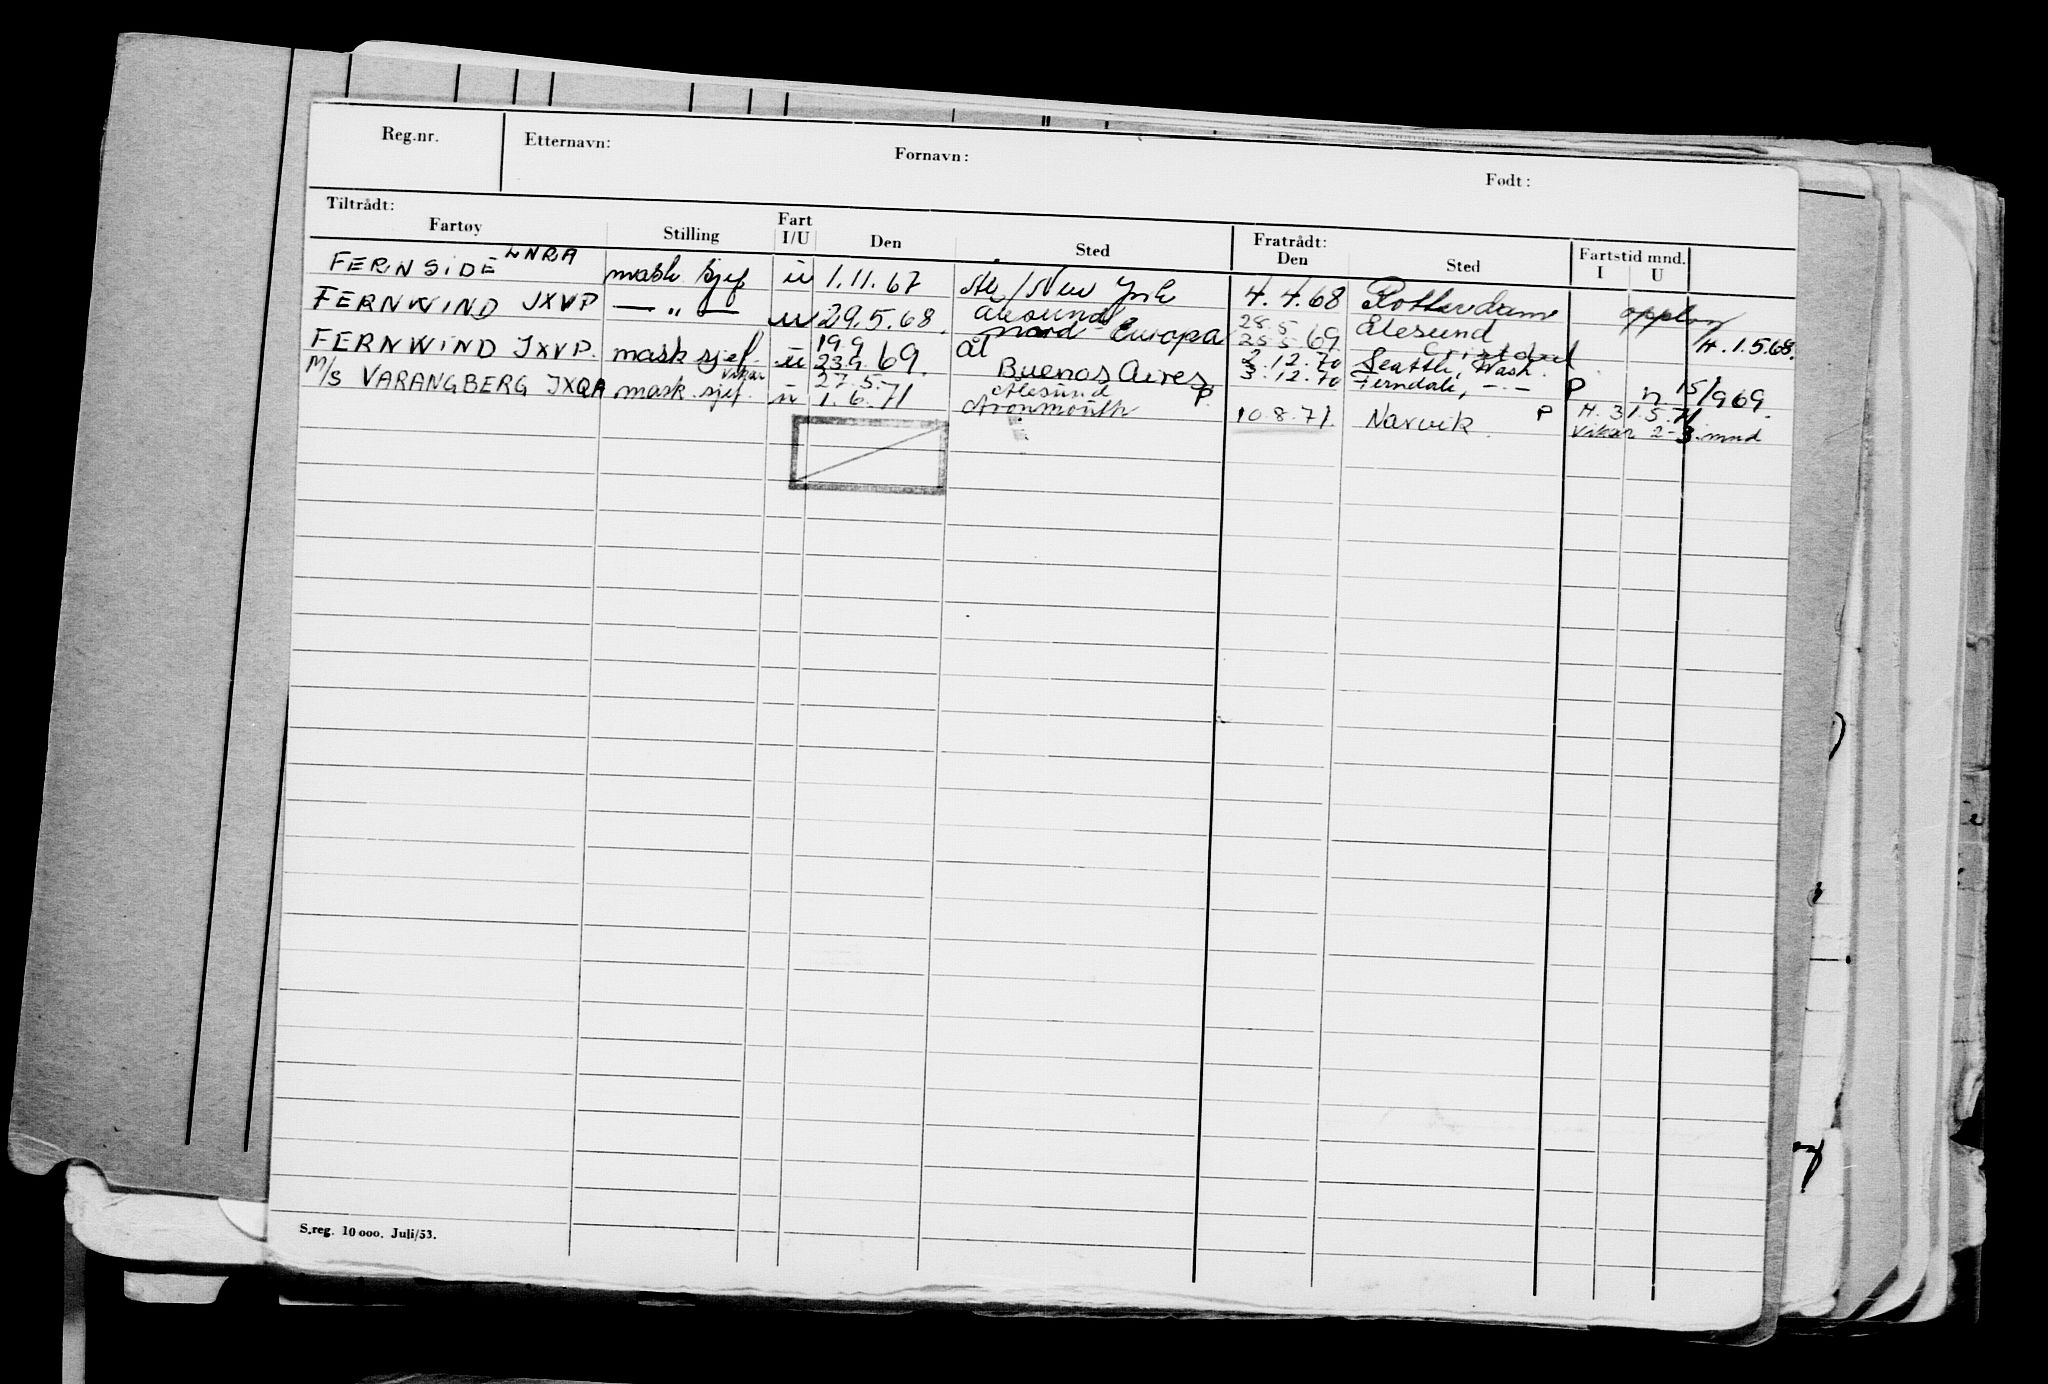 Reg.nr. Etternavn: Fornavn: Født:
Tiltrådt: Fratrådt: Fartstid mnd.
Fartøy Stilling Fart I/U Den Sted Den Sted I U
FERNSIDE LNRA mask sjef u 1.11.67 Al/New York 4.4.68 Rotterdam oppl
FERNWIND JXVP — " — u 29.5.68. Ålesund 28.5 Ålesund H. 1.5.68.
nord Europa 25.5.69.
FERNWIND JXVP. mask sjef. u 19.9 ål 2.12.70 Seattle, Wash.
23.9.69. Buenos Aires 3.12.70 Ferndale, -.- P 15/9 69.
M/S VARANGBERG JXQA mask. sjef. vikar u 27.5. Ålesund P H. 31.5.71
1.6.71 Avonmouth 10.8.71. Narvik P Vikar 2-3 mnd
S.reg. 10 000. Juli/53.